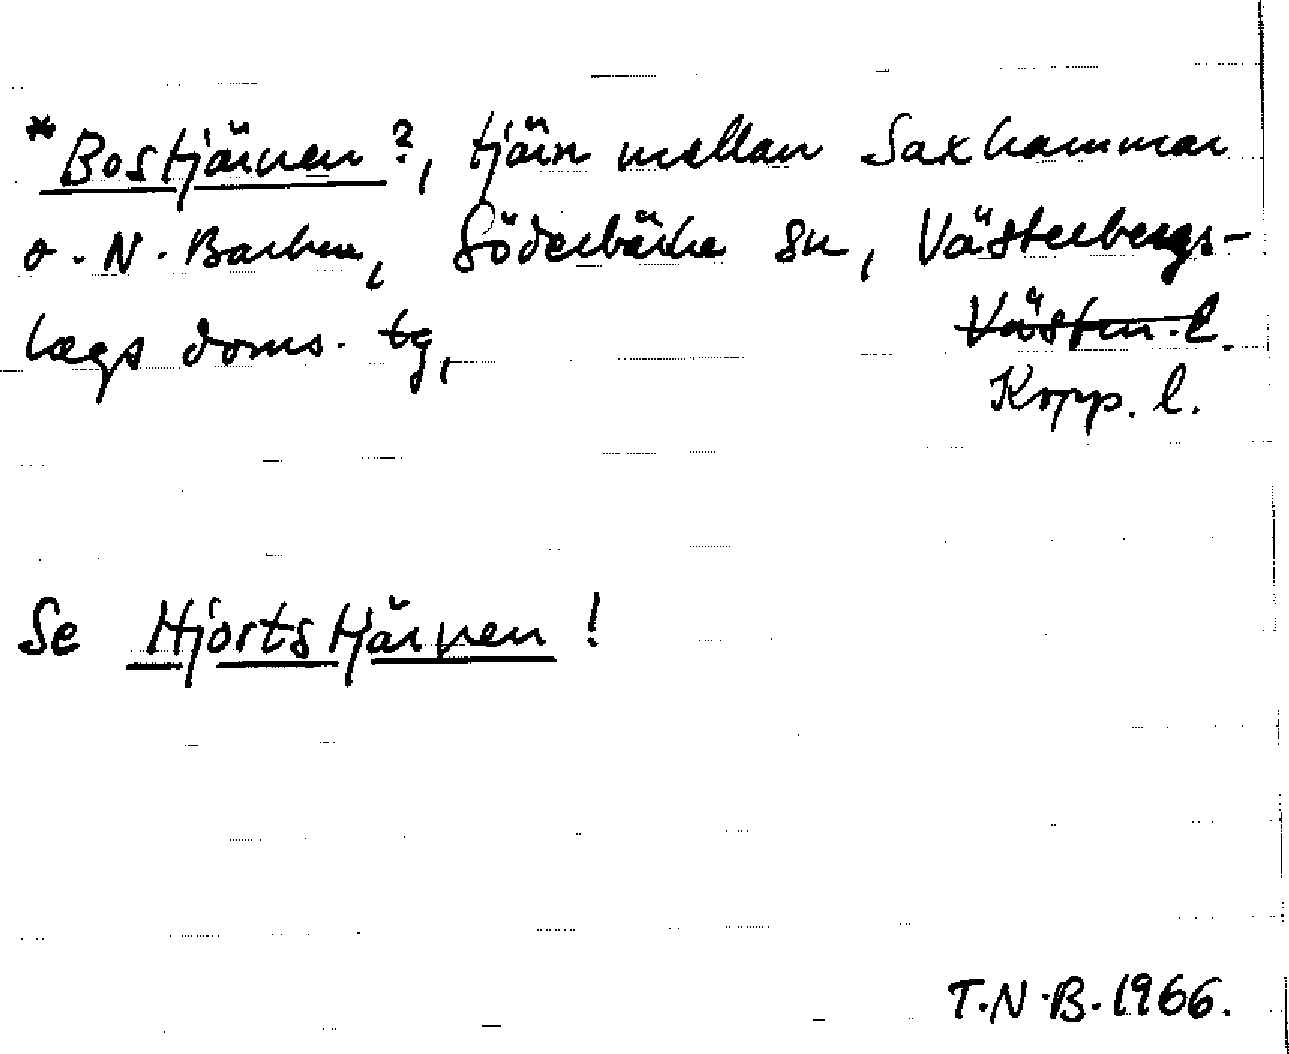 *Bostjärnen?, tjärn mellan Saxhammar
o. N. Barken, Söderbärke sn, Västerbergs-
lags doms. tg, Västm. l.
Kopp. l.
Se Hjortstjärnen!
T.N.B. 1966.